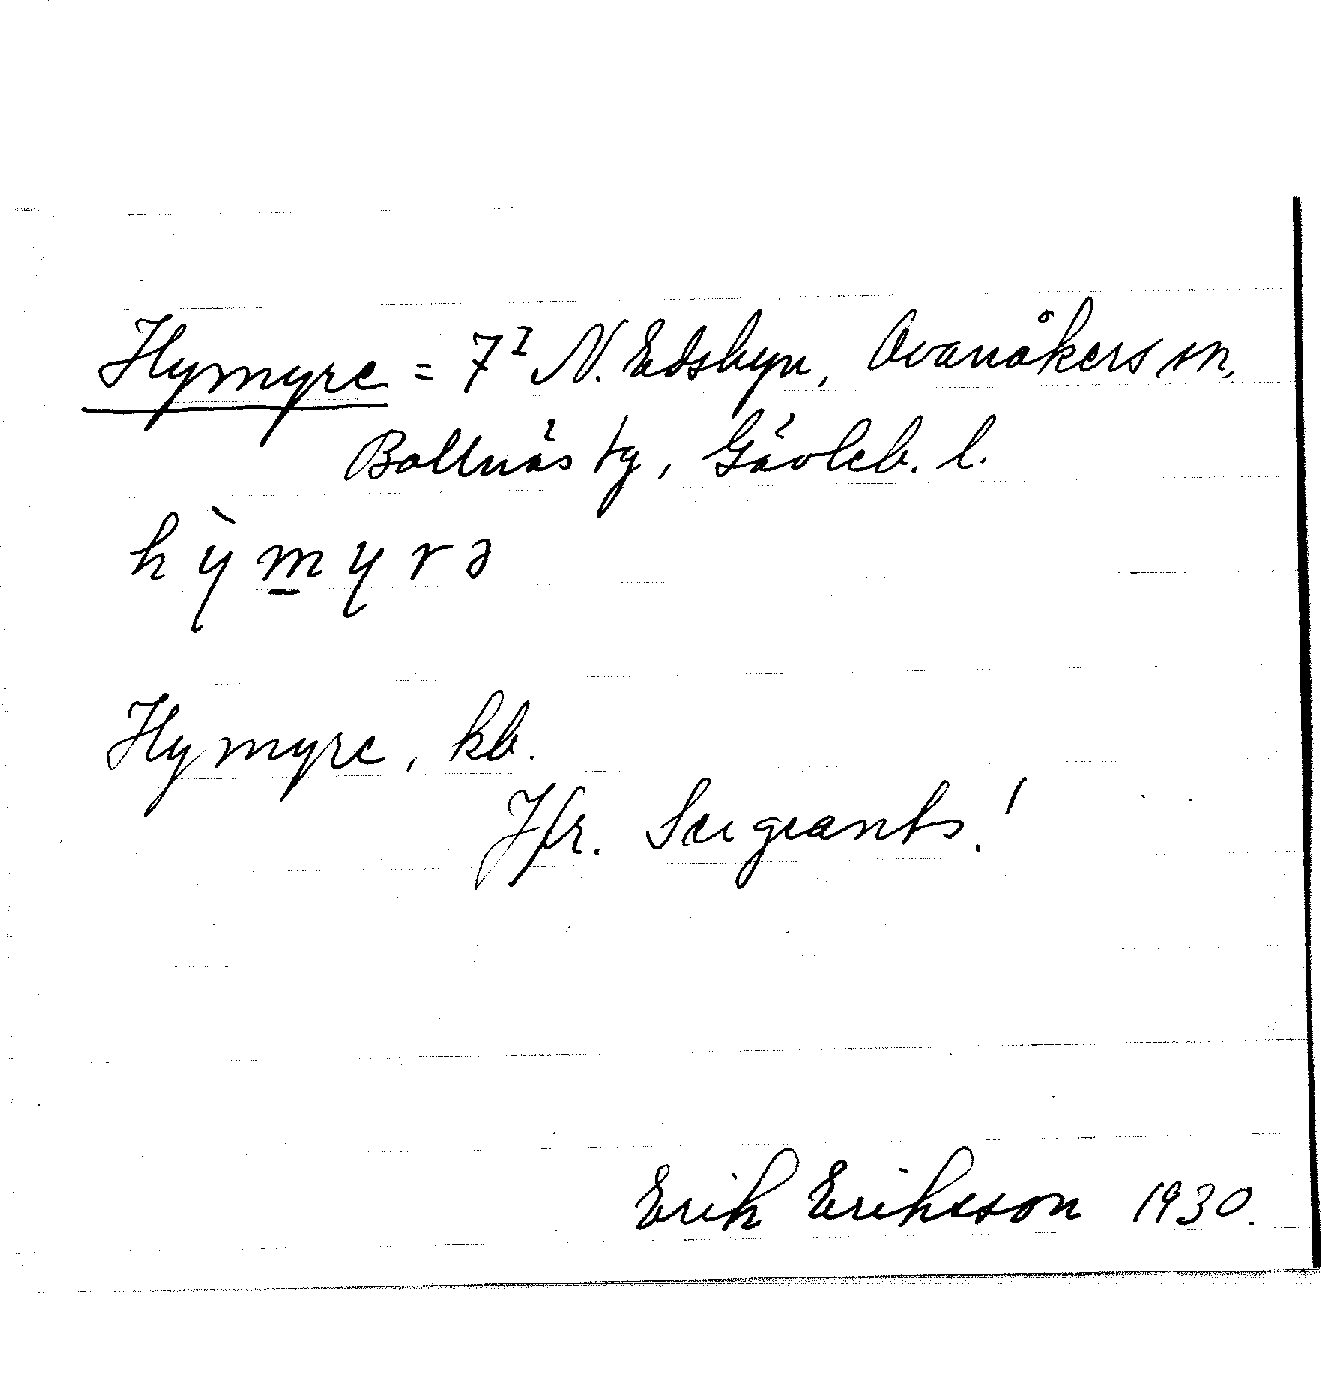 Hymyre = 7<sup>I</sup> N. Edsbyn, Ovanåkers sn,
Bollnäs tg, Gävleb. l.
hy̆̀m̲yrə
Hymyre, kb.
Jfr. Sergeants!
Erik Eriksson 1930.